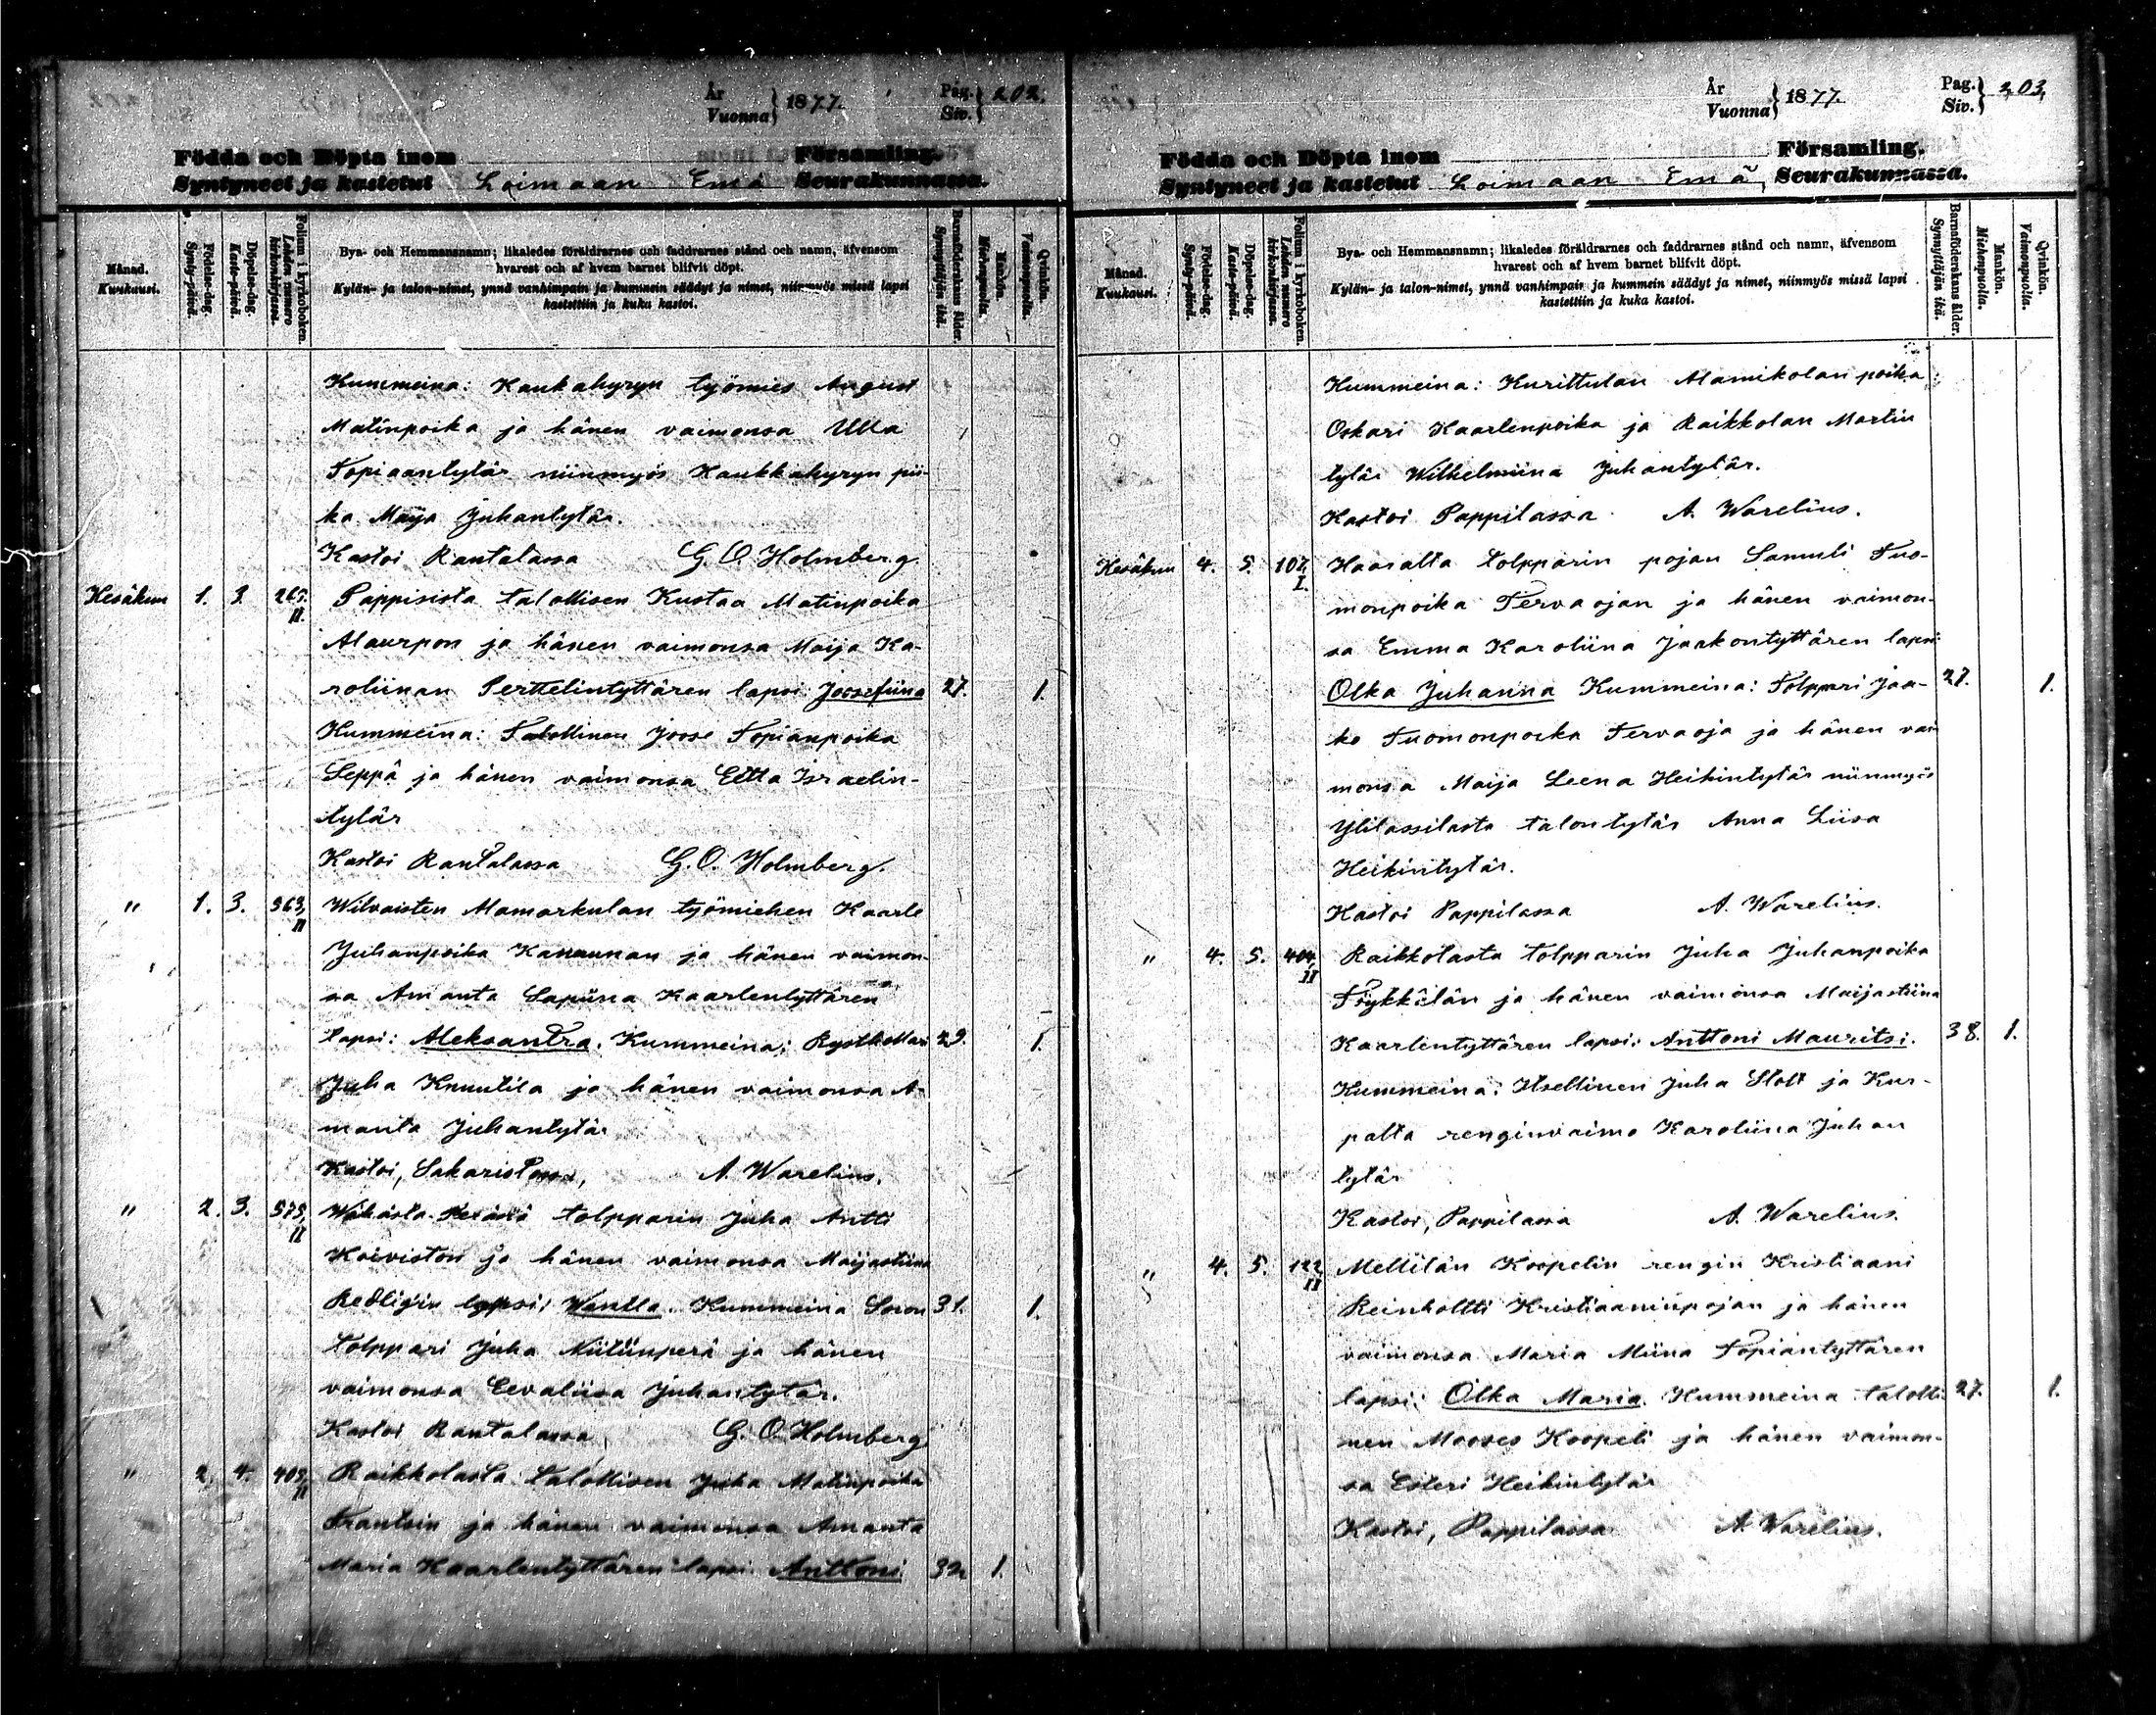 År
Vuonna} 1877.
Pag.
Siv.} 202.
Födda och Döpta inom Församling.
Syntyneet ja kastetut Loimaan Emä Seurakunnassa.
Månad.
Kuukausi.
Födelse-dag.
Synty-päivä.
Döpelse-dag.
Kaste-päivä.
Folium i kyrkoboken.
Lehden numero kirkonkirjassa.
Bya- och Hemmansnamn; likaledes föräldrarnes och faddrarnes stånd och namn, äfvensom
hvarest och af hvem barnet blifvit döpt.
Kylän- ja talon-nimet, ynnä vanhimpain ja kummein säädyt ja nimet, niinmyös missä lapsi
kastettiin ja kuka kastoi.
Barnaföderskans ålder.
Synnyttäjän ikä.
Mankön.
Miehenpuolia.
Qvinkön.
Vaimonpuolia.
Kummeina: Kaukahyryn työmies August
Matinpoika ja hänen vaimonsa Ulla
Topiaantytär niinmyös Kaukkahyryn pii-
ka Maija Juhantytär.
Kastoi Rantalassa G. O Holmberg.
Kesäkuu 1. 3. II. Pappisista talollisen Kustaa Matinpoika
Alaurpon ja hänen vaimonsa Maija Ka-
roliinan Perttelintyttären lapsi: Joosefiina 27. 1.
Kummeina: Talollinen Joose Topianpoika
Seppä ja hänen vaimonsa Eetta Israelin-
tytär
Kastoi Rantalassa G. O. Holmberg.
" 1. 3. 363, II Wilvaisten Mamarkulan työmiehen Kaarle
Juhanpoika Kanaunan ja hänen vaimon-
sa Amanta Sapiina Kaarlentyttären
lapsi: Aleksandra. Kummeina: 29. 1.
Juha Knuutila ja hänen vaimonsa A-
manta Juhantytär
Kastoi, Sakaristossa, A. Warelius.
" 2. 3. 575, II tolpparin Juha Antti
Koiviston ja hänen vaimonsa Maijastiina
lapsi: Wantla. Kummeina 31. 1.
tolppari Juha Niitünperä ja hänen
vaimonsa Eevaliisa Juhantytär.
Kastoi Rantalassa, G. O. Holmberg
" 2. 4. II Raikkolasta talollisen Juha Matinpoika
Frantsin ja hänen vaimonsa Amanta
Maria Kaarlentyttären lapsi: Anttoni 32 1.
År
Vuonna} 1877.
Pag.
Siv.} 203,
Födda och Döpta inom Församling.
Syntyneet ja kastetut Loimaan Emä, Seurakunnassa.
Månad.
Kuukausi.
Födelse-dag.
Synty-päivä.
Döpelse-dag.
Kaste-päivä.
Folium i kyrkoboken.
Lehden numero kirkonkirjassa.
Bya- och Hemmansnamn; likaledes föräldrarnes och faddrarnes stånd och namn, äfvensom
hvarest och af hvem barnet blifvit döpt.
Kylän- ja talon-nimet, ynnä vanhimpain ja kummein säädyt ja nimet, niinmyös missä lapsi
kastettiin ja kuka kastoi.
Barnaföderskans ålder.
Synnyttäjän ikä.
Mankön.
Miehenpuolia.
Qvinkön.
Vaimonpuolia.
Kummeina: Kurittulan Alamikolan poika
Oskari Kaarlenpoika ja Raikkolan Martin
tytär Wilhelmiina Juhantytär.
Kastoi Pappilassa A. Warelius.
Kesäkuu 4. 5. 107, I. Haaralta tolpparin pojan Samuli Tuo-
monpoika Tervaojan ja hänen vaimon-
sa Emma Karoliina Jaakontyttären lapsi:
Olka Juhanna Kummeina: Tolppari Jaa- 27. 1.
ko Tuomonpoika Tervaoja ja hänen vai-
monsa Maija Leena Heikintytär niinmyös
Ylilassilasta talontytär Anna Liisa
Heikintytär.
Kastoi Pappilassa A. Warelius.
" 4. 5. 404, II Raikkolasta tolpparin Juha Juhanpoika
Trykkälän ja hänen vaimonsa Maijastiina
Kaarlentyttären lapsi: Anttoni Mauritsi. 38. 1.
Kummeina: Itsellinen Juha Slott ja Kur-
palta renginvaimo Karoliina Juhan
tytär
Kastoi, Pappilassa A. Warelius.
" 4. 5. 122, II Mellilän Koopelin rengin Kristiaani
Reinholtti Kristiaaninpojan ja hänen
vaimonsa Maria Miina Topiantyttären
lapsi: Olka Maria. Kummeina talolli- 27. 1.
nen Mooses Koopeli ja hänen vaimon-
sa Esteri Heikintytär
Kastoi, Pappilassa A. Warelius.